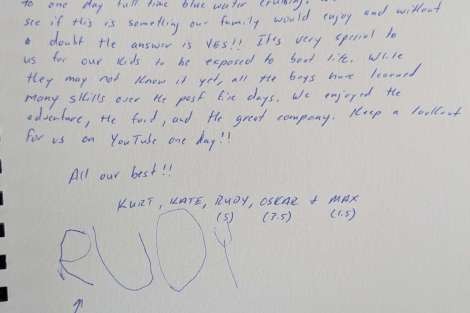 to one day full time blue water cruising. to
see if this is something our family would enjoy and without
a doubt the answer is YES!! It's very special to
us for our kids to be exposed to boat life. While
they may not know it yet, all the boys have learned
many skills over the past five days. We enjoyed the
adventure, the food, and the great company. Keep a lookout
for us on YouTube one day!!
All our best!!
KURT, KATE, RUDY, OSKAR + MAX
(5) (3.5) (1.5)
RUDY